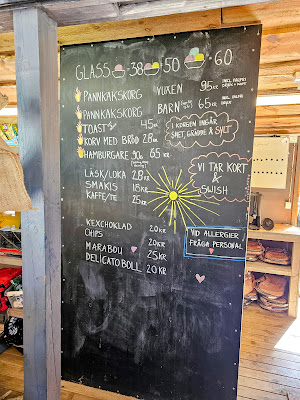 GLASS 38 50 60
PANNKAKSKORG VUXEN 95 KR
PANNKAKSKORG BARN 65 KR
I KORGEN INGÅR
SMET, GRÄDDE & SYLT
TOAST 45 KR
KORV MED BRÖD 28 KR
HAMBURGARE 90g 65 KR
VI TAR KORT
&
SWISH
LÄSK/LOKA 28 KR
SMAKIS 18 KR
KAFFE/TE 25 KR
KEXCHOKLAD 20 KR
CHIPS 20 KR
MARABOU 25 KR
DELICATOBOLL 20 KR
VID ALLERGIER
FRÅGA PERSONAL